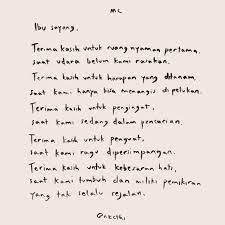 MC
Ibu sayang,
Terima kasih untuk ruang nyaman pertama,
saat udara belum kami rasakan.
Terima kasih untuk harapan yang ditanam,
saat kami hanya bisa menangis dipelukan.
Terima kasih untuk pengingat,
saat kami sedang dalam pencarian.
Terima kasih untuk penguat,
saat kami ragu dipersimpangan.
Terima kasih untuk kebesaran hati,
saat kami tumbuh dan miliki pemikiran
yang tak selalu sejalan.